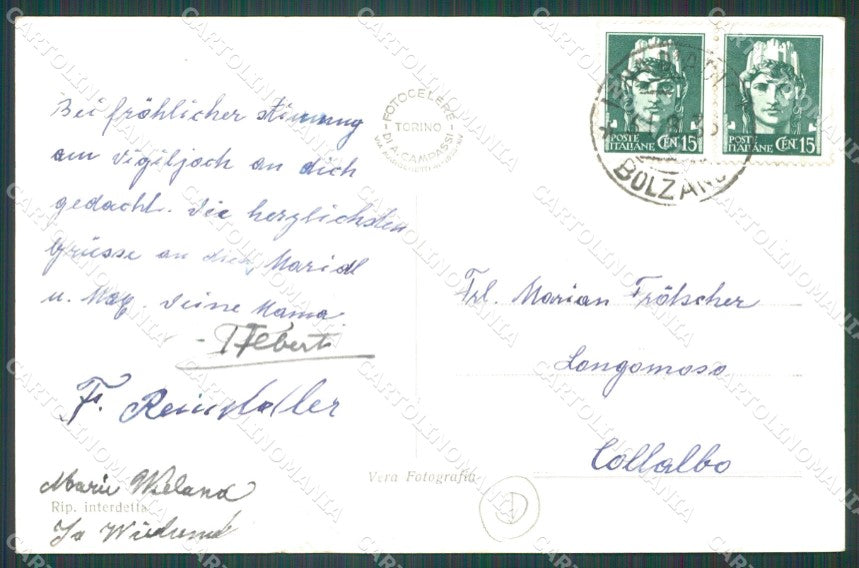 Bei fröhlicher stimmung
am Vigiljoch an dich
gedacht. Die herzlichsten
Grüsse an dich, Maridl
u. Deine Mama
F.
Marie
Rip. interdetta
FOTOCELERE
TORINO
DI A. CAMPASSI
Vera Fotografia
POSTE ITALIANE CENT. 15
POSTE ITALIANE CENT. 15
BOLZANO
Frl. Marian Frötscher
Longomoso
Collalbo
D
CARTOLINOMANIA